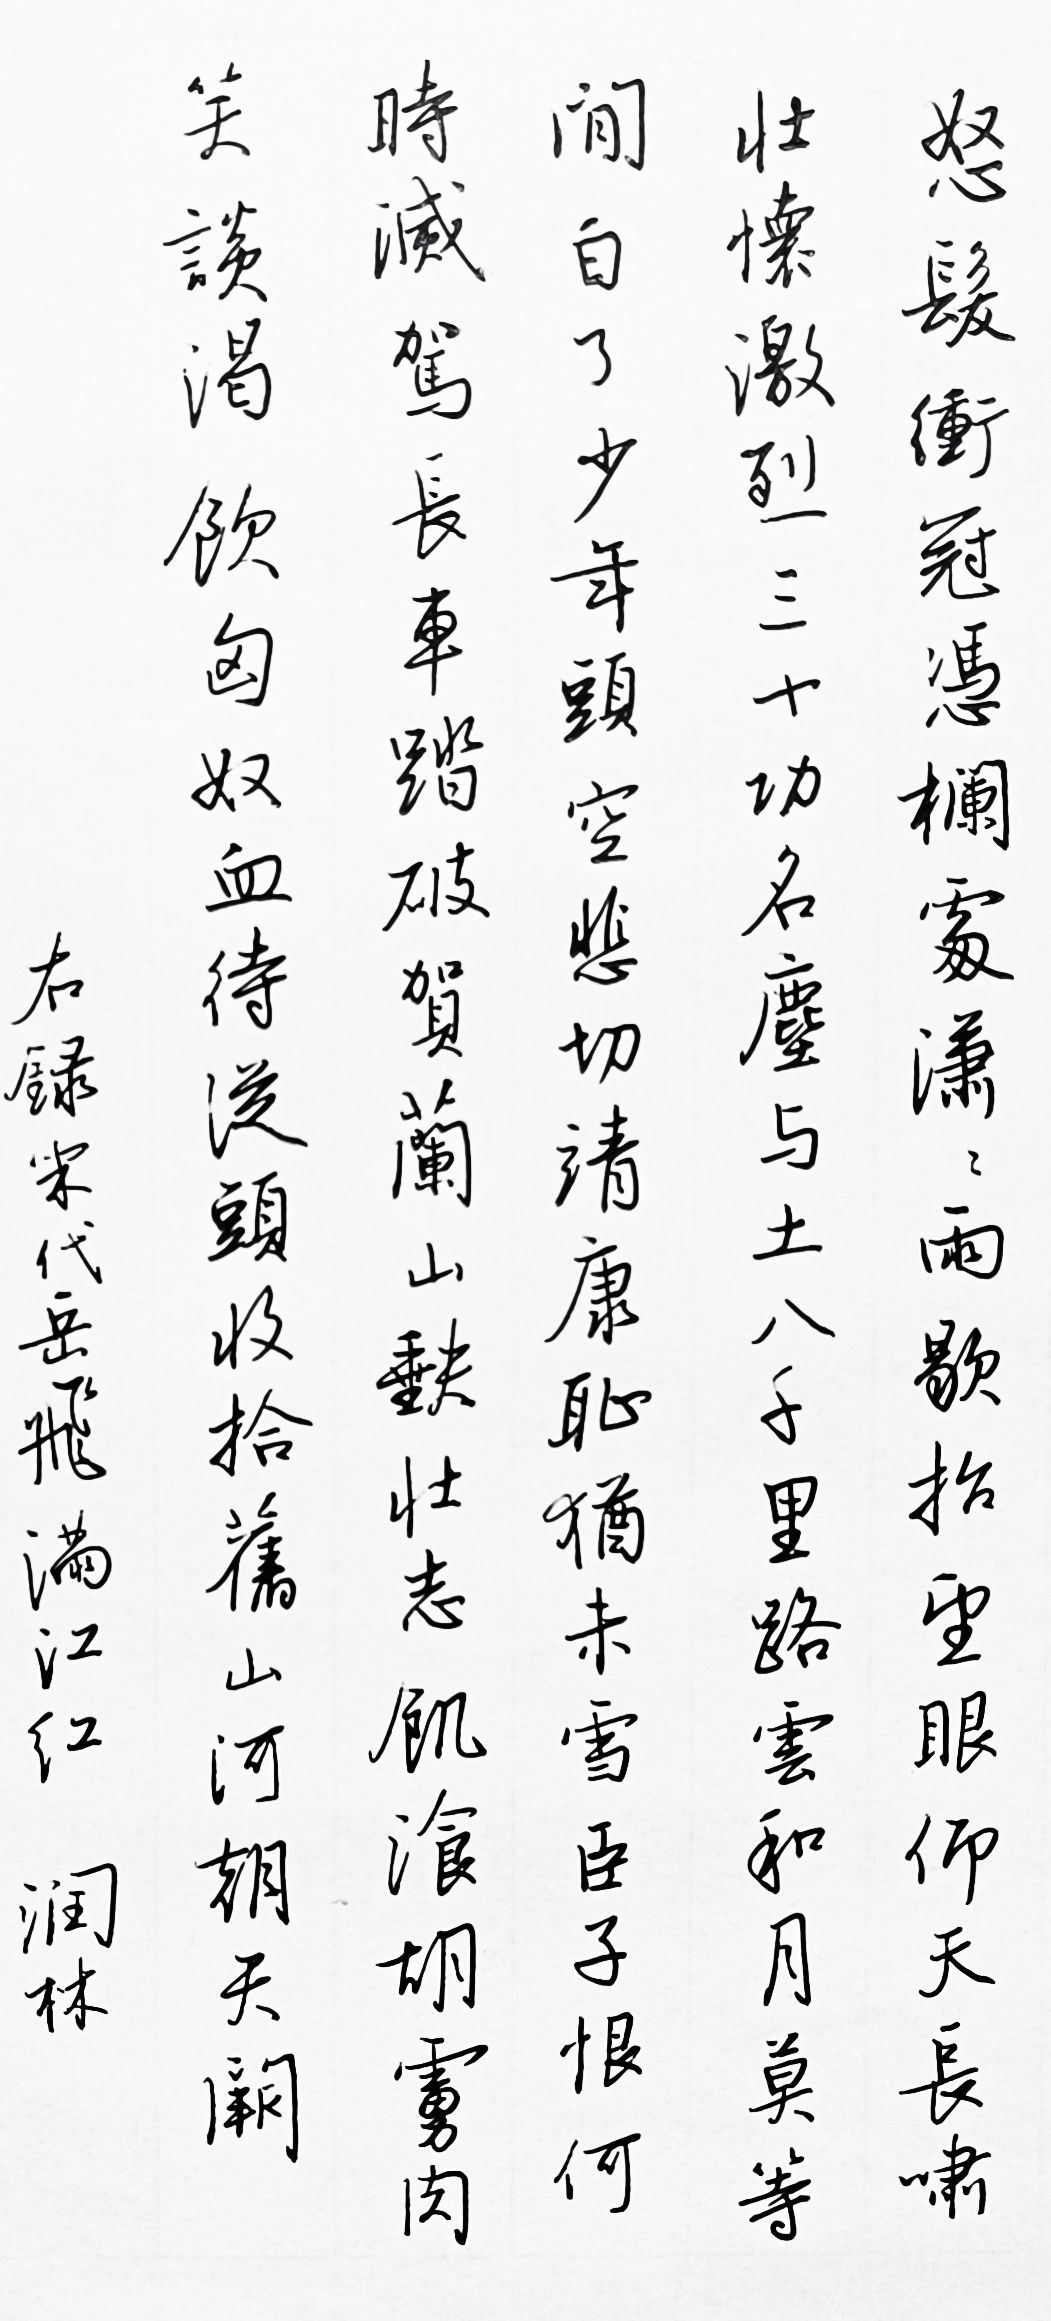 怒髮衝冠憑欄處潇〻雨歇抬望眼仰天長嘯
壯懷激烈三十功名塵与土八千里路雲和月莫等
閒白了少年頭空悲切靖康恥猶未雪臣子恨何
時滅駕長車踏破賀蘭山缺壯志飢飡胡虜肉
笑談渴飲匈奴血待從頭收拾舊山河朝天闕
右録宋代岳飛满江红 润林